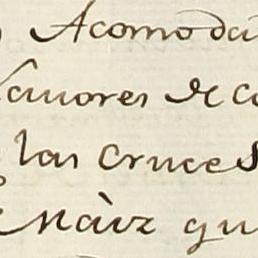 Acomoda
lauores de c
las cruces
Màiz qu